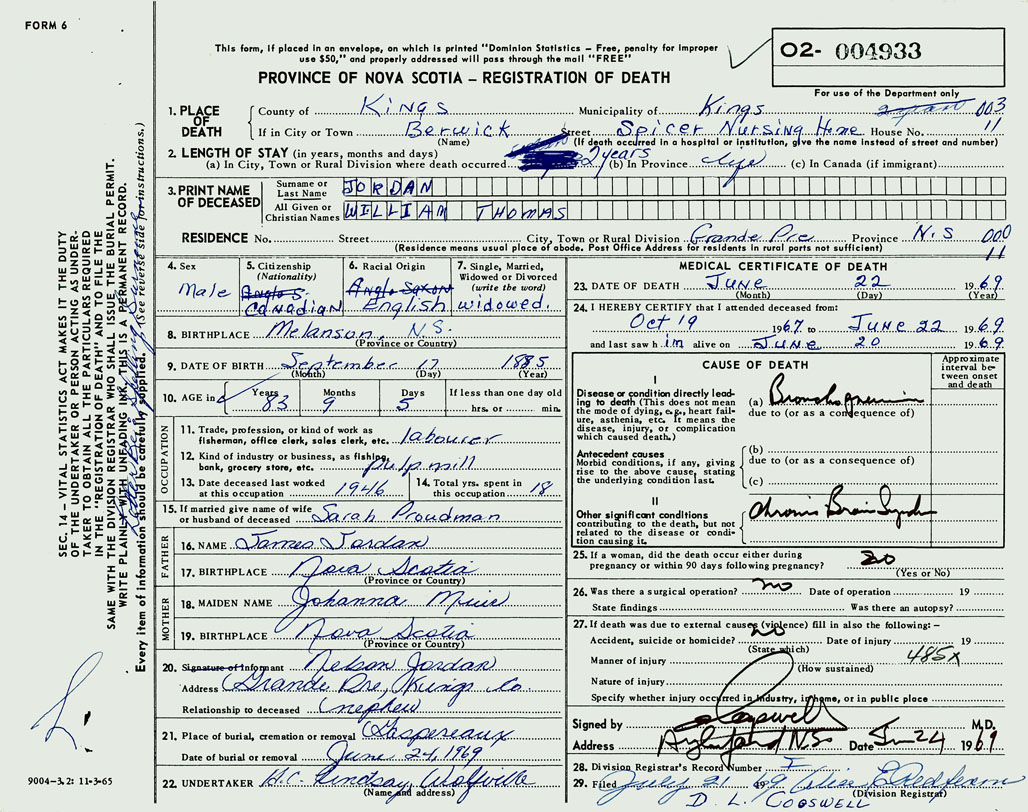 FORM 6
This form, if placed in an envelope, on which is printed "Dominion Statistics – Free, penalty for improper
use $50," and properly addressed will pass through the mail "FREE"
PROVINCE OF NOVA SCOTIA – REGISTRATION OF DEATH
02- 004933
For use of the Department only
003
11
1. PLACE OF DEATH
County of Kings Municipality of Kings
If in City or Town Berwick Street Spicer Nursing Home House No.
(Name) (If death occurred in a hospital or institution, give the name instead of street and number)
2. LENGTH OF STAY (in years, months and days)
(a) In City, Town or Rural Division where death occurred 2 years (b) In Province life (c) In Canada (if immigrant)
3. PRINT NAME OF DECEASED
Surname or Last Name JORDAN
All Given or Christian Names WILLIAM THOMAS
RESIDENCE No. Street City, Town or Rural Division Grande Pre Province N.S 000
(Residence means usual place of abode. Post Office Address for residents in rural ports not sufficient) 11
4. Sex Male
5. Citizenship (Nationality) Anglo S. Canadian
6. Racial Origin Anglo Saxon English
7. Single, Married, Widowed or Divorced (write the word) widowed.
8. BIRTHPLACE Melanson, N.S.
(Province or Country)
9. DATE OF BIRTH September 17 1885
(Month) (Day) (Year)
10. AGE in Years 83 Months 9 Days 5 If less than one day old hrs. or min.
OCCUPATION
11. Trade, profession, or kind of work as fisherman, office clerk, sales clerk, etc. labourer
12. Kind of industry or business, as fishing, bank, grocery store, etc. pulp mill
13. Date deceased last worked at this occupation 1946
14. Total yrs. spent in this occupation 18
15. If married give name of wife or husband of deceased Sarah Proudman
FATHER
16. NAME James Jordan
17. BIRTHPLACE Nova Scotia
(Province or Country)
MOTHER
18. MAIDEN NAME Johanna Muir
19. BIRTHPLACE Nova Scotia
(Province or Country)
20. Signature of Informant Nelson Jordan
Address Grande Pre, Kings Co.
Relationship to deceased (nephew)
21. Place of burial, cremation or removal Gaspereaux
Date of burial or removal June 24, 1969
22. UNDERTAKER H.C. Lindsay, Wolfville
(Name and address)
MEDICAL CERTIFICATE OF DEATH
23. DATE OF DEATH June 22 1969
(Month) (Day) (Year)
24. I HEREBY CERTIFY that I attended deceased from:
Oct 19 1967 to June 22 1969
and last saw him alive on June 20 1969
CAUSE OF DEATH
Approximate interval between onset and death
I
Disease or condition directly leading to death (This does not mean the mode of dying, e.g., heart failure, asthenia, etc. It means the disease, injury, or complication which caused death.)
(a) Bronchopneumonia
due to (or as a consequence of)
Antecedent causes
Morbid conditions, if any, giving rise to the above cause, stating the underlying condition last.
(b)
due to (or as a consequence of)
(c)
II
Other significant conditions contributing to the death, but not related to the disease or condition causing it.
Chronic Brain Syndrome
25. If a woman, did the death occur either during pregnancy or within 90 days following pregnancy? no
(Yes or No)
26. Was there a surgical operation? no Date of operation 19
State findings Was there an autopsy?
27. If death was due to external causes (violence) fill in also the following:–
Accident, suicide or homicide? no Date of injury 19
(State which)
Manner of injury 485X
(How sustained)
Nature of injury
Specify whether injury occurred in industry, in home, or in public place
Signed by Cogswell M.D.
Address Aylesford N.S. Date Jun 24 1969
28. Division Registrar's Record Number
29. Filed July 21 1969
(Division Registrar)
D. L. COGSWELL
SEC. 14 – VITAL STATISTICS ACT MAKES IT THE DUTY
OF THE UNDERTAKER OR PERSON ACTING AS UNDER-
TAKER TO OBTAIN ALL THE PARTICULARS REQUIRED
IN THE "REGISTRATION OF DEATH" AND TO FILE THE
SAME WITH THE DIVISION REGISTRAR WHO SHALL ISSUE THE BURIAL PERMIT.
WRITE PLAINLY WITH UNFADING INK. THIS IS A PERMANENT RECORD.
Every item of information should be carefully supplied. (See reverse side for instructions.)
9004-3.2: 11-3-65